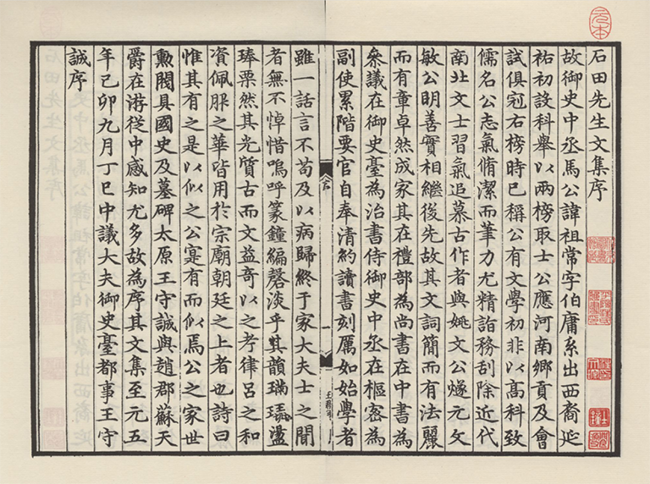 石田先生文集序
故御史中丞馬公諱祖常字伯庸系出西裔延
祐初設科舉以兩榜取士公應河南鄉貢及會
試俱冠右榜時已稱公有文學初非以高科致
儒名公志氣脩潔而筆力尤精詣務刮除近代
南北文士習氣追慕古作者與姚文公燧元文
敏公明善實相繼後先故其文詞簡而有法麗
而有章卓然成家其在禮部為尚書在中書為
叅議在御史臺為治書侍御史中丞在樞密為
副使累階要官自奉清約讀書刻厲如始學者
雖一話言不苟及以病歸終于家大夫士之聞
者無不悼惜嗚呼篆鐘編磬淡乎其韻瑞璜盪
琫栗然其光質古而文益奇以之考律呂之和
資佩服之華皆用於宗廟朝廷之上者也詩曰
惟其有之是以似之公寔有而似馬公之家世
勲閥具國史及墓碑太原王守誠與趙郡蘇天
爵在游從中感知尤多故為序其文集至元五
年己卯九月丁巳中議大夫御史臺都事王守
誠序
元本